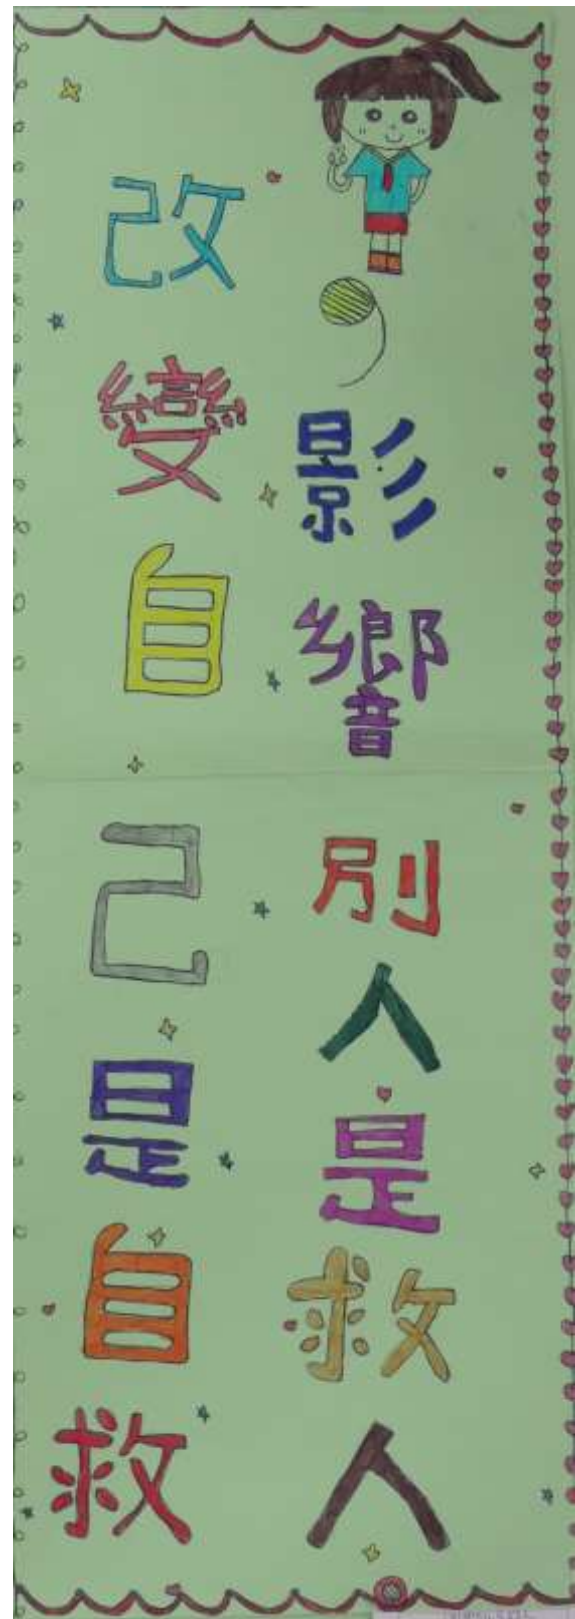 改變自己是自救
，影響別人是救人